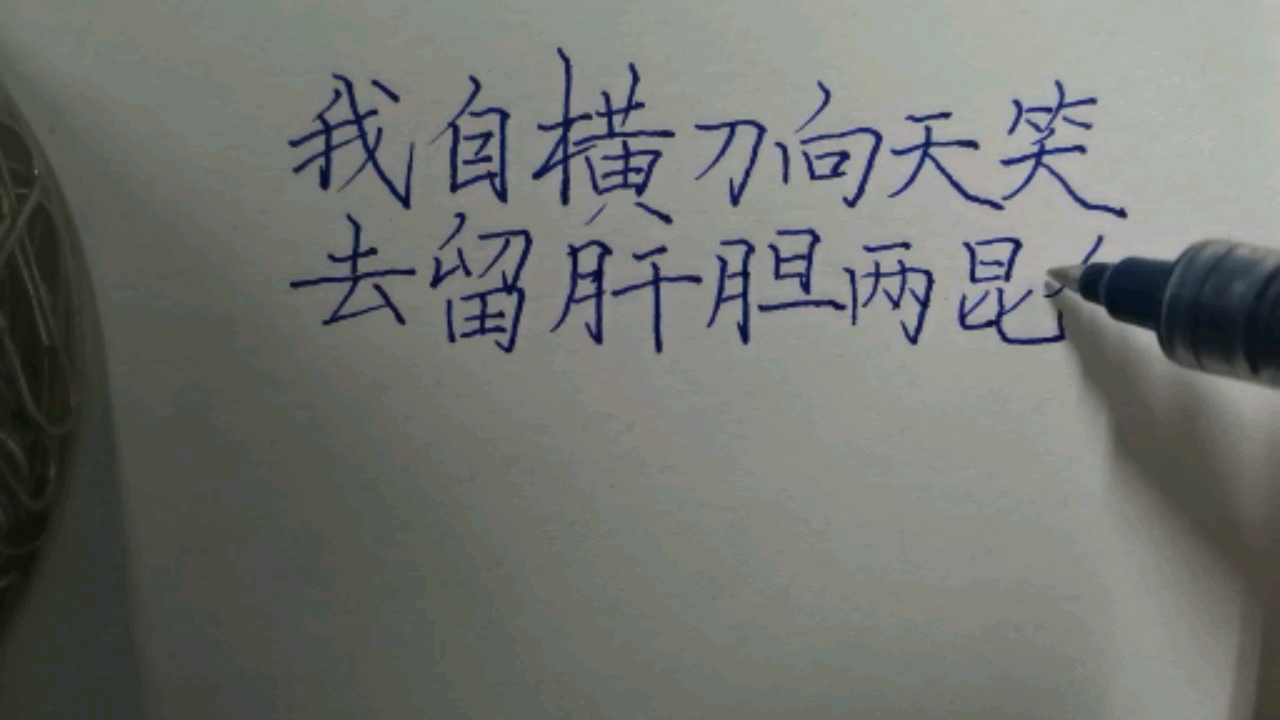 我自横刀向天笑
去留肝胆两昆